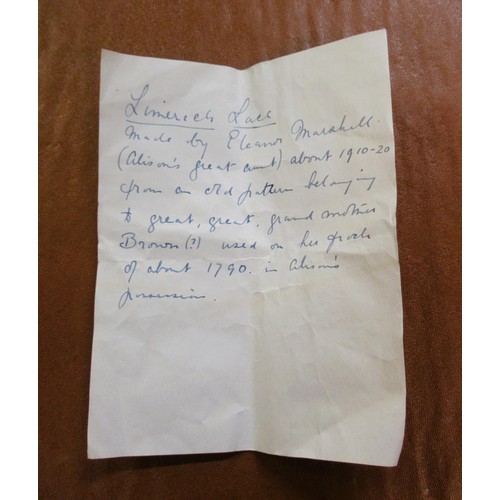 Limerick Lace
Made by Eleanor Marshall.
(Alison's great aunt) about 1910-20
from an old pattern belonging
to great, great, grand mother
Brown (?) used on her frock
of about 1790. in Alison's
possession.